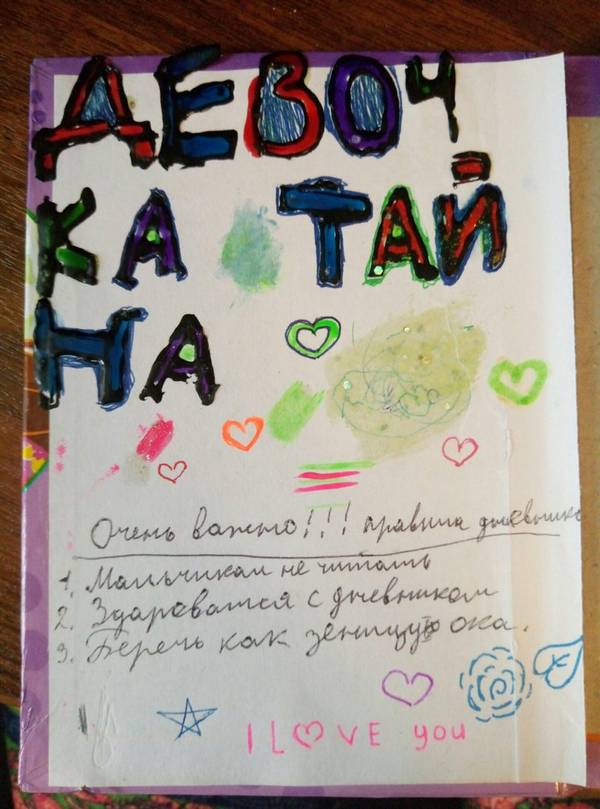 ДЕВОЧ
КА ТАЙ
НА
Очень важно!!! правила дневника
1. Мальчикам не читать
2. Здароватся с дневником
3. Беречь как зеницу ока.
I LOVE you